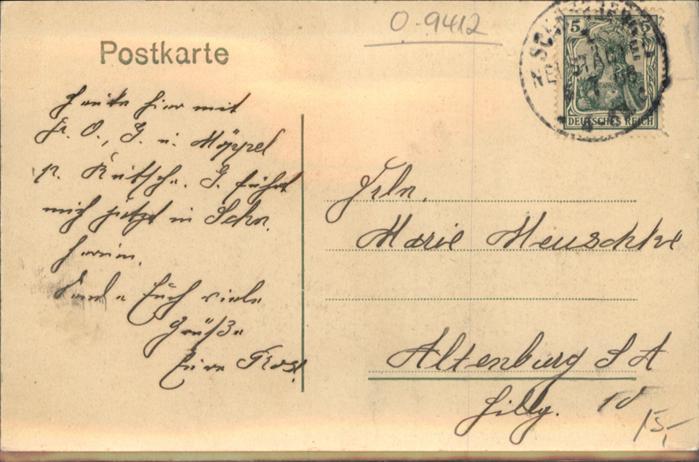 O-9412
Postkarte
5
DEUTSCHES REICH
Heute hier mit
Fr. O., G. u. Möppel
p. Kutsche. G. führt
mich jetzt in Schn.
herum.
Sende Euch viele
Grüße
Eure
Frln.
Marie Meuschke
Altenburg S A
15,-